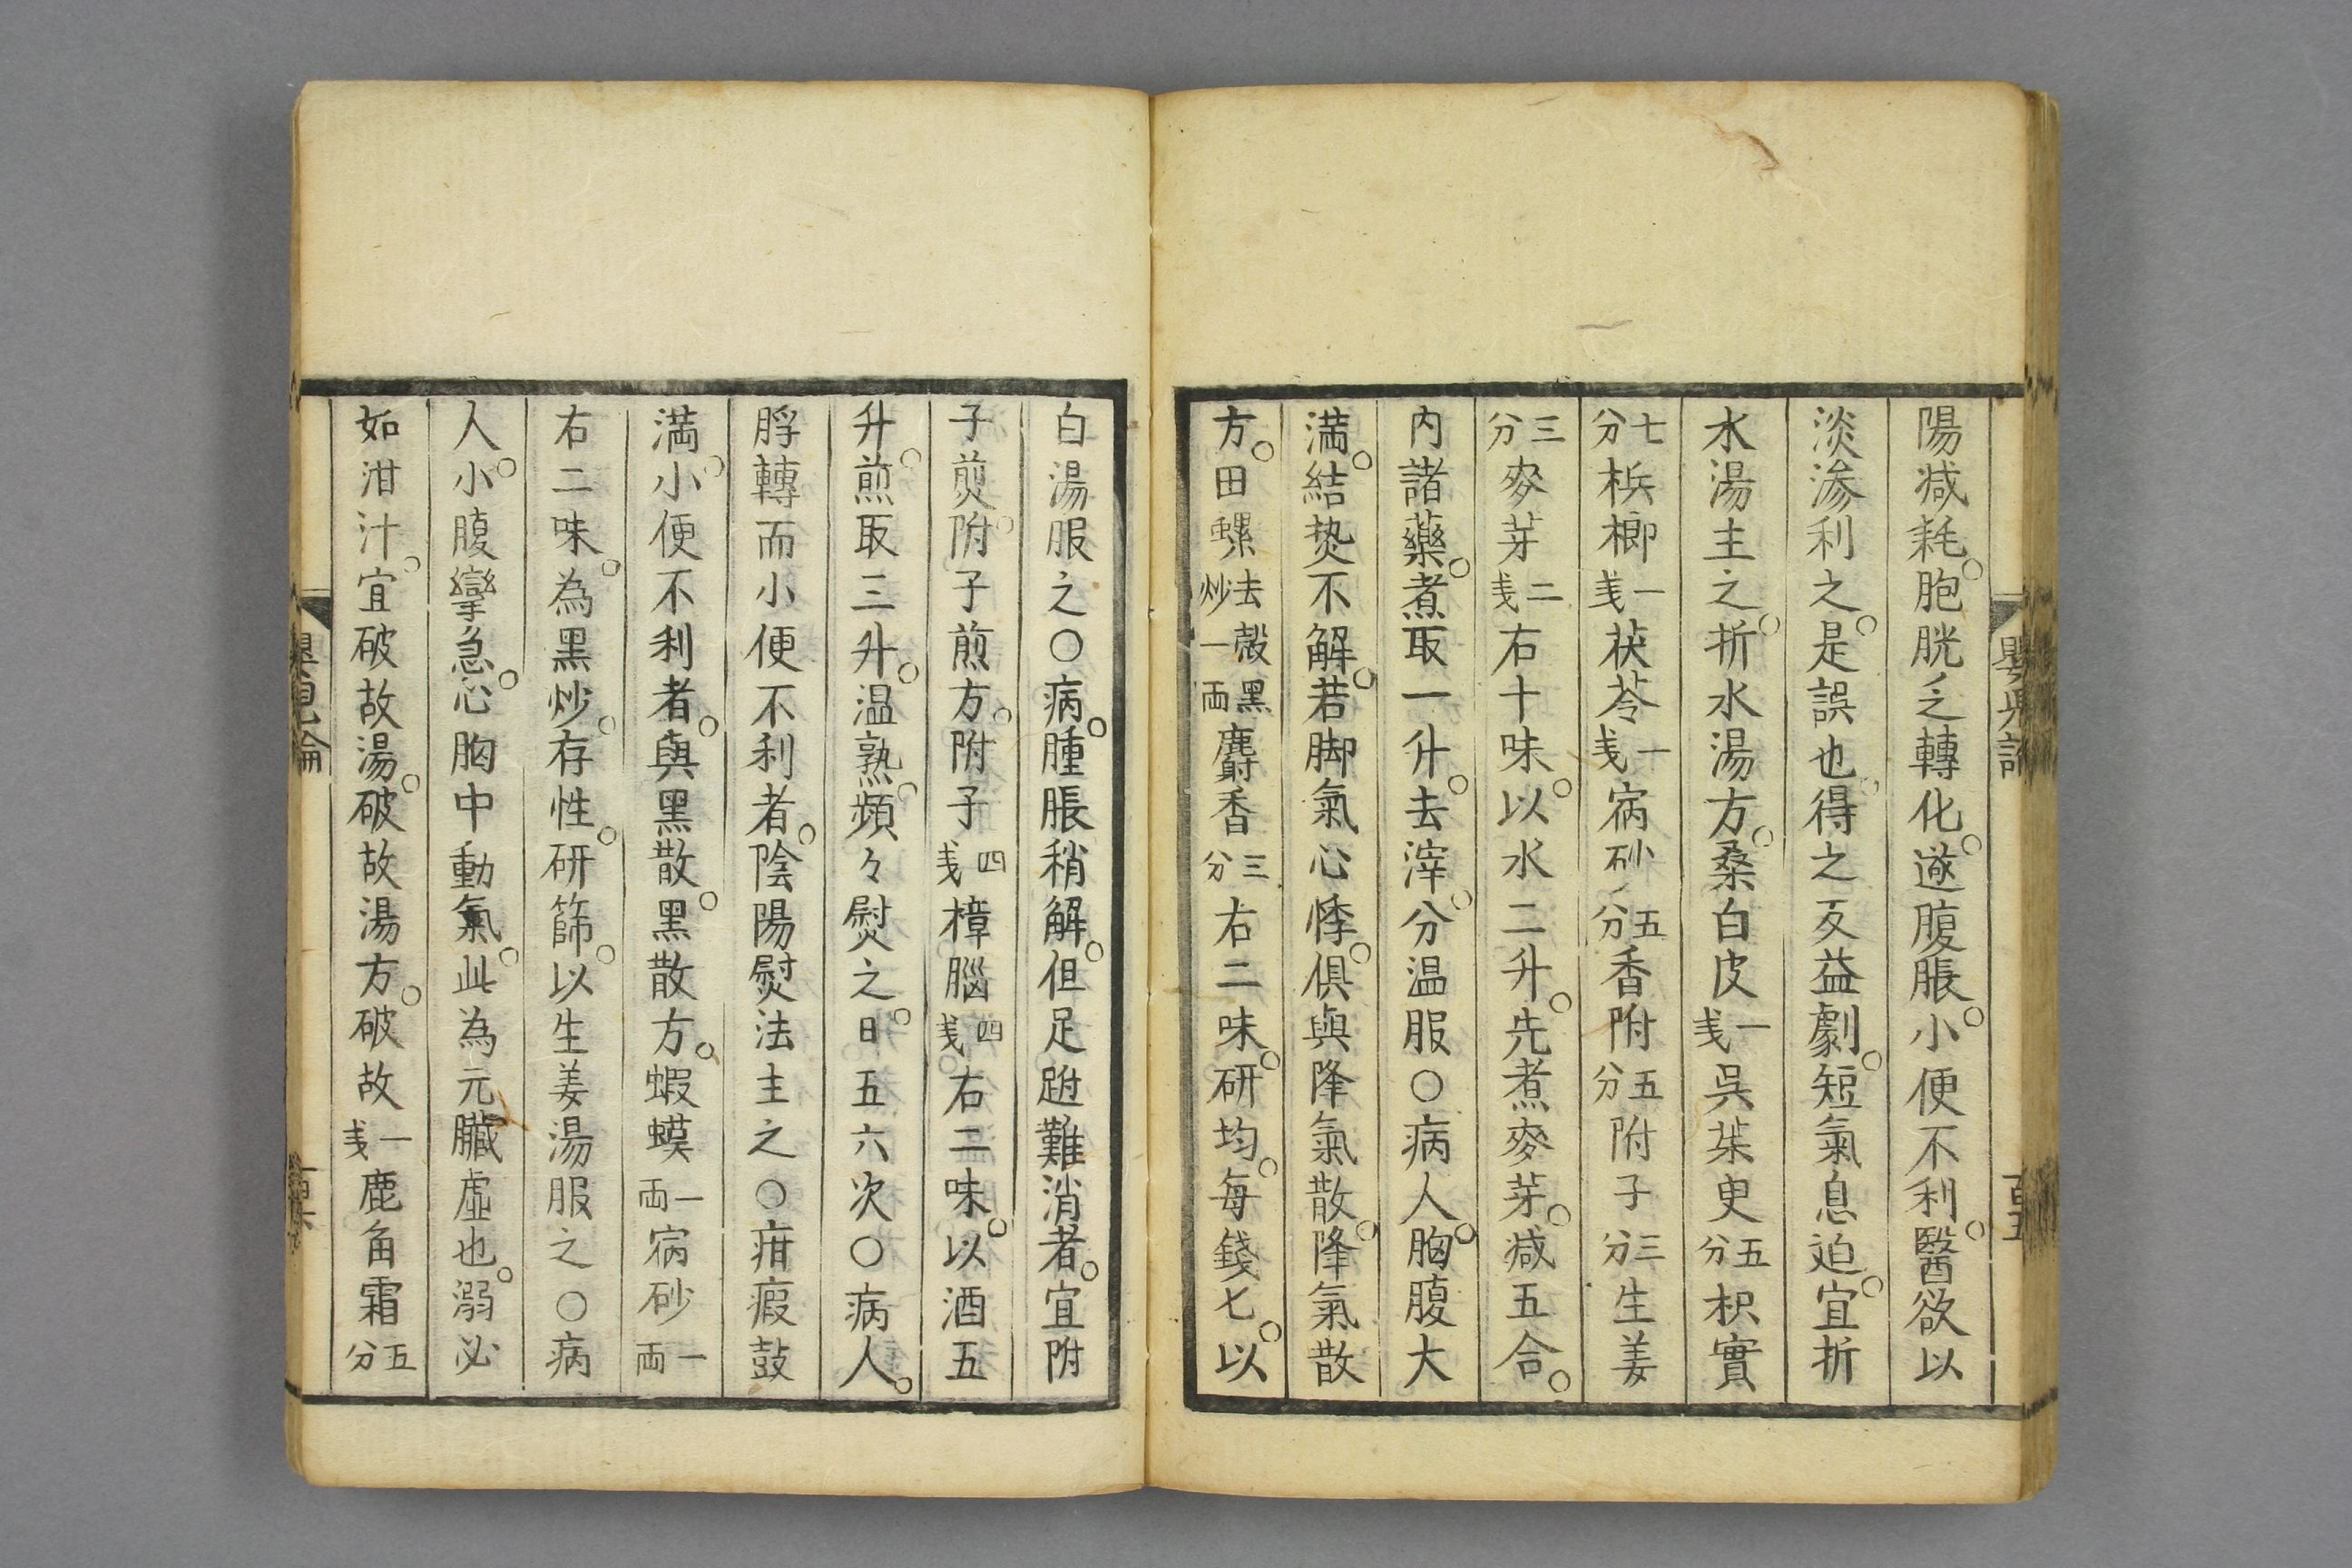 陽減耗。胞胱乏轉化。遂腹脹。小便不利。醫欲以
淡滲利之。是誤也。得之反益劇。短氣息迫。宜折
水湯主之。折水湯方。桑白皮一戔吳茱臾五分枳實
七分梹榔一戔茯苓一戔㾛砂五分香附五分附子三分生姜
三分麥芽二戔右十味。以水二升。先煮麥芽。減五合。
内諸藥。煮取一升。去滓。分温服○病人胸。腹大
満。結㶼不解。若脚氣心悸。俱與降氣散。降氣散
方。田螺去殼黑炒一両麝香三分右二味。研均。每錢匕。以
白湯服之○病。腫脹稍解。但足跗難消者。宜附
子熨。附子煎方。附子四戔樟腦四戔右二味。以酒五
升。煎取三升。温熟。頻々熨之。日五六次○病人。
脬轉而小便不利者。陰陽熨法主之○疳瘕鼓
満。小便不利者。與黑散。黑散方。蝦蟆一両㾛砂一両
右二味。為黑炒。存性。研篩。以生姜湯服之○病
人。小腹攣急。心胸中動氣。此為元臟虛也。溺必
如泔汁。宜破故湯。破故湯方。破故一戔鹿角霜五分